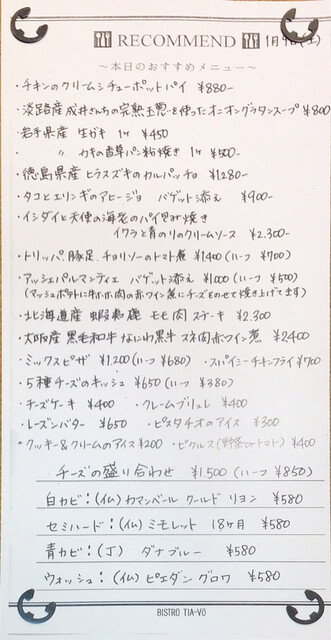 RECOMMEND 1月4日(土)
～本日のおすすめメニュー～
・チキンのクリームシチューポットパイ ¥880-
・淡路産 成井さんちの完熟玉葱を使ったオニオングラタンスープ ¥800
・岩手県産 生ガキ 1ヶ ¥450
・ 〃 カキの香草パン粉焼き 1ヶ ¥500-
・徳島県産 ヒラスズキのカルパッチョ ¥1280-
・タコとエリンギのアヒージョ バゲット添え ¥900-
・イシダイと天使の海老のパイ包み焼き
イクラと青のりのクリームソース ¥2.300-
・トリッパ、豚足、チョリソーのトマト煮 ¥1400 (ハーフ ¥700)
・アッシェパルマンティエ バゲット添え ¥1000 (ハーフ ¥500)
(マッシュポテトに牛ホホ肉の赤ワイン煮にチーズをのせて焼き上げてます)
・北海道産 蝦夷鹿 モモ肉 ステーキ ¥2.300
・大阪産 黒毛和牛 なにわ黒牛 スネ肉赤ワイン煮 ¥2400
・ミックスピザ ¥1.200 (ハーフ ¥680) ・スパイシーチキンフライ ¥700
・5種チーズのキッシュ ¥650 (ハーフ ¥380)
・チーズケーキ ¥400 ・クレームブリュレ ¥400
・レーズンバター ¥650 ・ピスタチオのアイス ¥300
・クッキー&クリームのアイス ¥200 ・ピクルス (野菜orトマト) ¥400
チーズの盛り合わせ ¥1.500 (ハーフ ¥850)
白カビ:(仏) カマンベール クールド リヨン ¥580
セミハード:(仏) ミモレット 18ヶ月 ¥580
青カビ:(丁) ダナブルー ¥580
ウォッシュ:(仏) ピエダングロワ ¥580
BISTRO TIA-VÖ